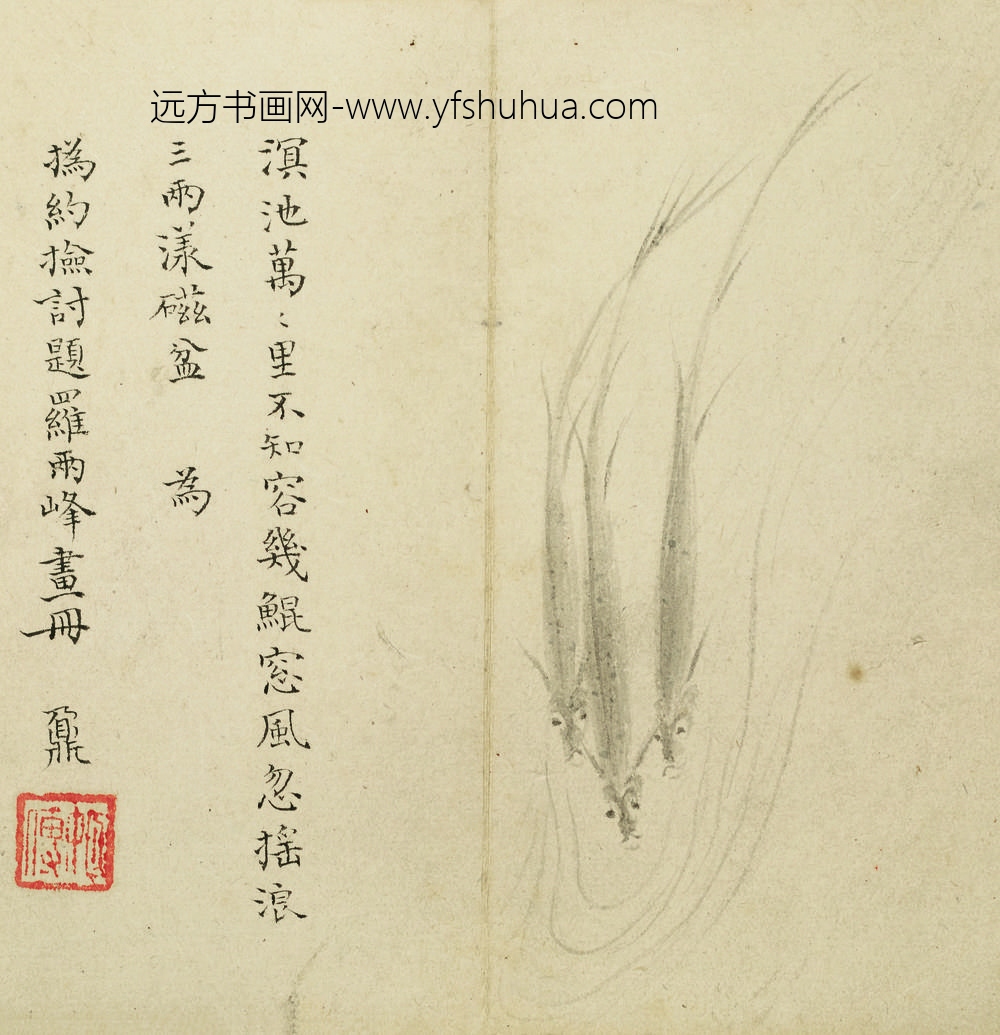 远方书画网-www.yfshuhua.com
溟池萬〻里不知容幾鯤窓風忽摇浪
三兩漾磁盆 為
撝約撿討題羅兩峰畫冊 鼐